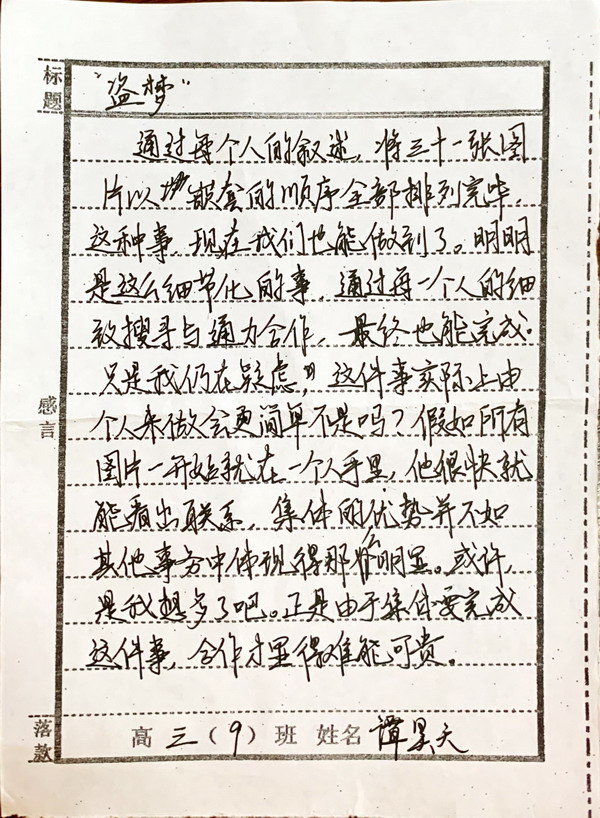 标题
"盗梦"
通过每个人的叙述，将三十一张图
片以嵌套的顺序全部排列完毕，
这种事，现在我们也能做到了。明明
是这么细节化的事，通过每一个人的细
致搜寻与通力合作，最终也能完成。
只是我们在疑虑，这件事实际上由
个人来做会更简单不是吗？假如所有
图片一开始就在一个人手里，他很快就
能看出联系，集体的优势并不如
其他事务中体现得那价明显。或许，
是我想多了吧。正是由于集体要完成
这件事，合作才显得难能可贵。
感言
落款
高三（9）班 姓名 谭昊天